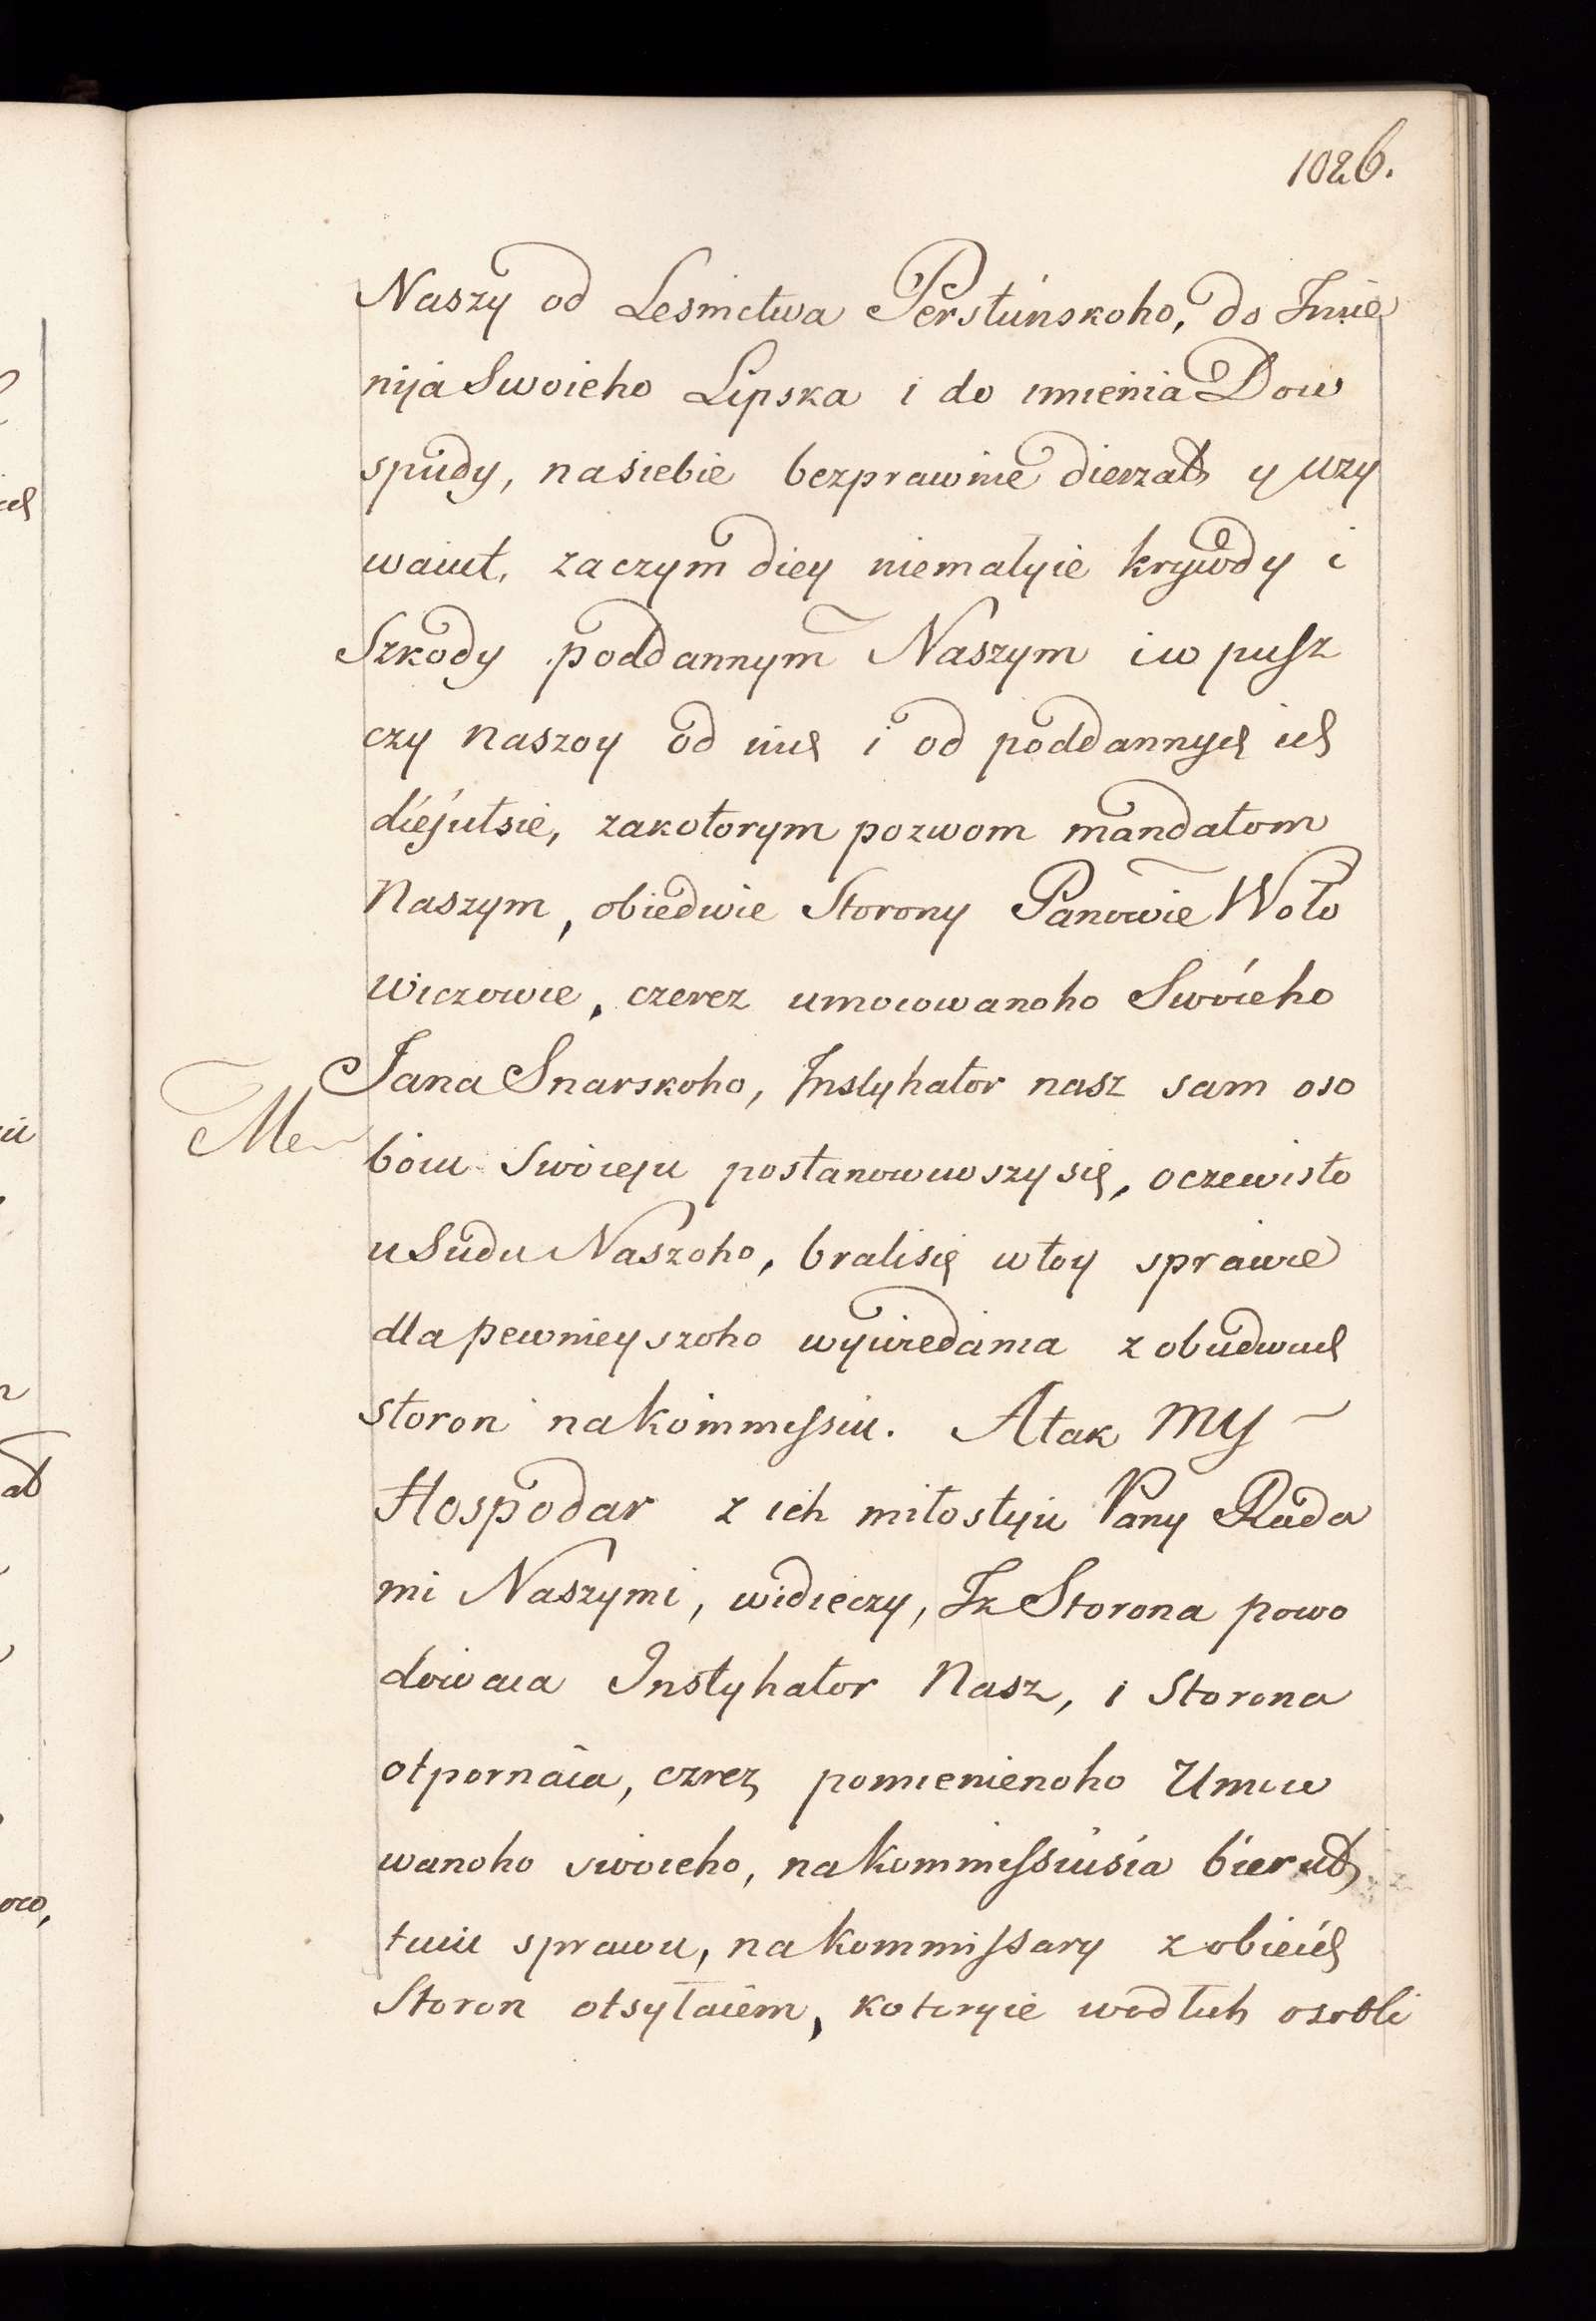 1026.
Naszy od Lesnictwa Perstunskoho, do Imie
nija Swoieho Lipska i do imienia Dow
spudy, na siebie bezprawnie dierzat y uzy
waiut, zaczym diey niemalyie krywdy i
Szkody poddannym Naszym i w pusz
czy naszoy od nich i od poddannych ich
diejutsie, za kotorym pozwom mandatom
Naszym, obiedwie Storony Panowie Woło
wiczowie, czerez umocowanoho Swoieho
Jana Snarskoho, Instyhator nasz sam oso
boiu swoieju postanowiwszy się, oczewisto
u Sudu Naszoho, bralisię w toy sprawie
dla pewnieyszoho wywiedania z obudwuch
storon na kommissiu. A tak my
Hospodar z ich miłostyiu Pany Rada
mi Naszymi, widieczy, Iz Storona powo
dowaia Instyhator Nasz, i Storona
otpornaia, czrez pomienienoho Umco
wanoho swoieho, na kommissiusia bierut,
tuiu sprawu, na kommissary z obieich
Storon otsyłaiem, kotoryie wodłuh osobli